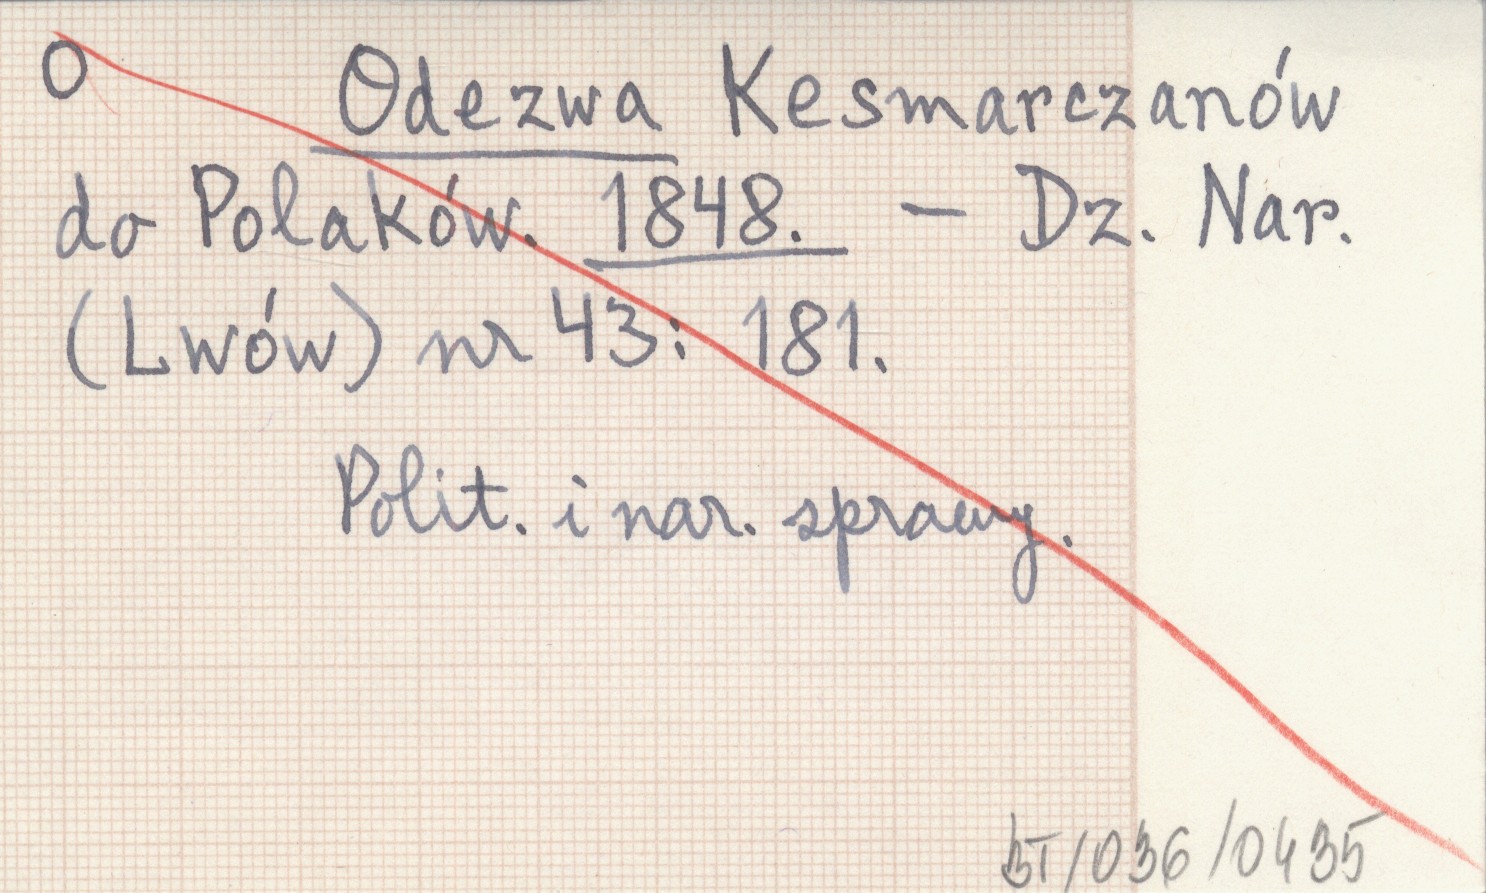 O Odezwa Kesmarczanów
do Polaków. 1848. — Dz. Nar.
(Lwów) nr 43: 181.
Polit. i nar. sprawy.
BT/036/0435